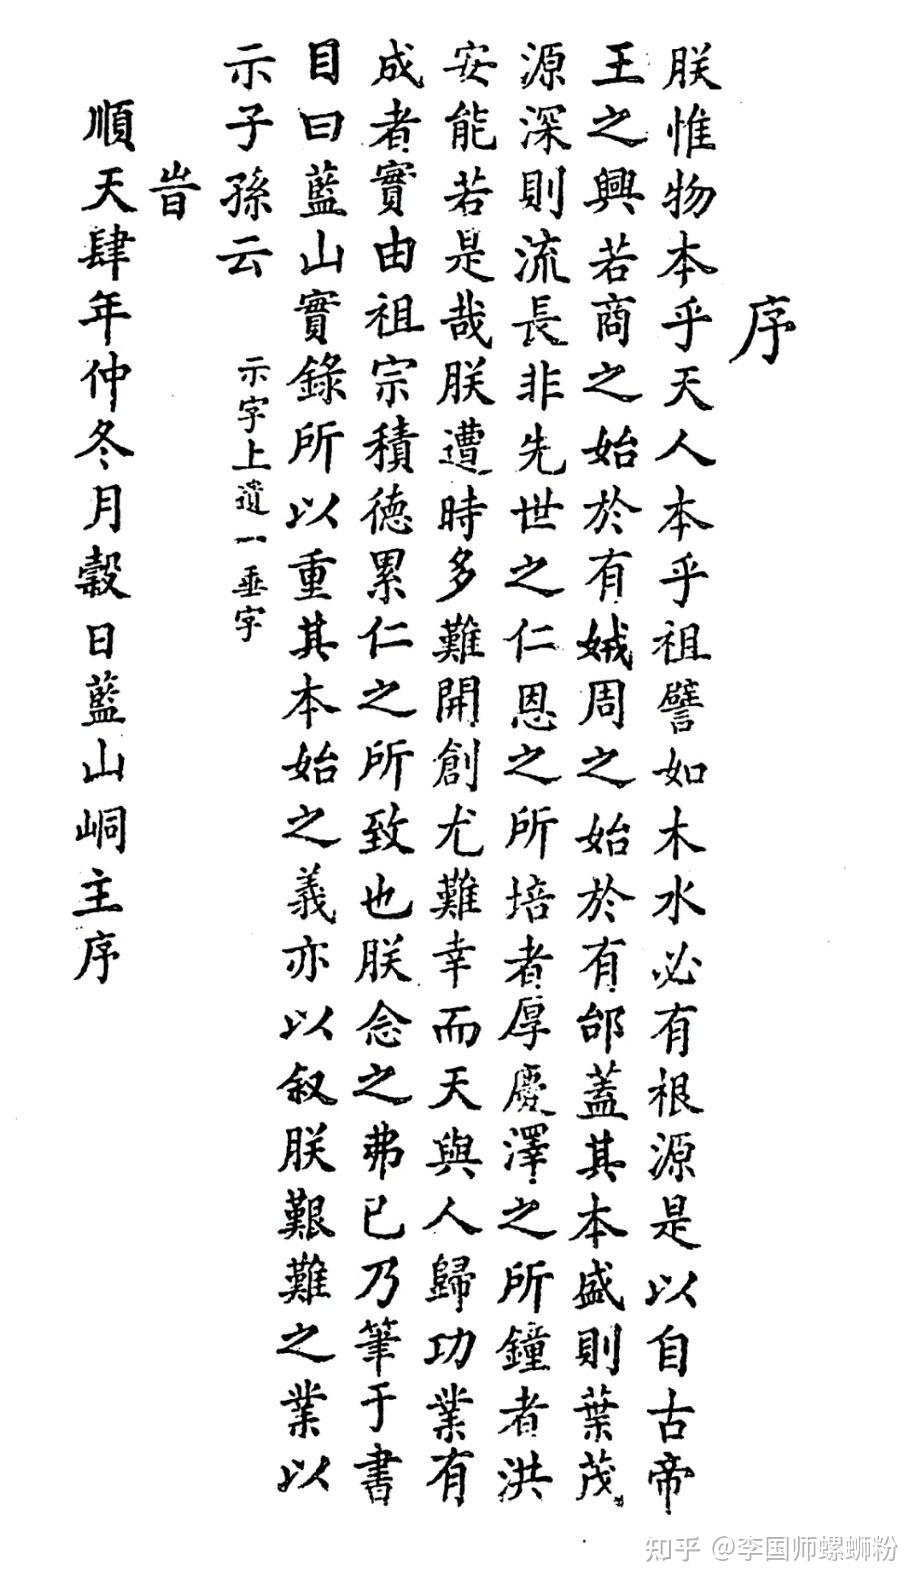 序
朕惟物本乎天人本乎祖譬如木水必有根源是以自古帝
王之興若商之始於有娀周之始於有邰蓋其本盛則葉茂
源深則流長非先世之仁恩之所培者厚慶澤之所鐘者洪
安能若是哉朕遭時多難開創尤難幸而天與人歸功業有
成者實由祖宗積德累仁之所致也朕念之弗已乃筆于書
目曰藍山實錄所以重其本始之義亦以叙朕艱難之業以
示子孫云 示字上遺一垂字
旹
順天肆年仲冬月穀日藍山峒主序
知乎 @李国师螺蛳粉